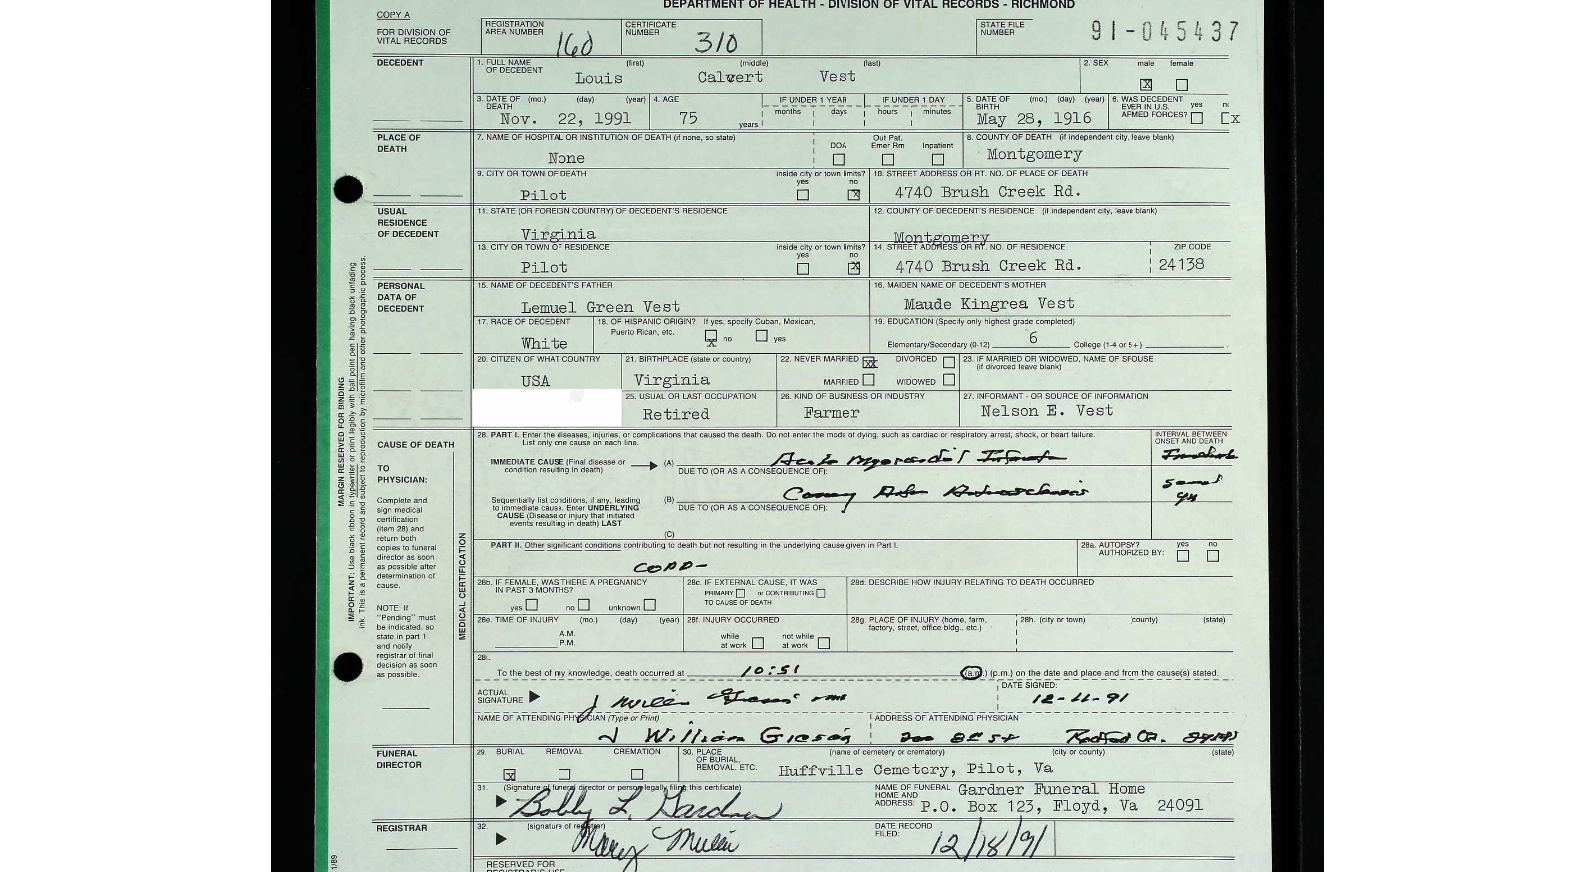 DEPARTMENT OF HEALTH - DIVISION OF VITAL RECORDS - RICHMOND
COPY A
FOR DIVISION OF VITAL RECORDS
REGISTRATION AREA NUMBER 160
CERTIFICATE NUMBER 310
STATE FILE NUMBER 91-045437
DECEDENT
1. FULL NAME OF DECEDENT (first) (middle) (last)
Louis Calvert Vest
2. SEX male female
X
3. DATE OF DEATH (mo.) (day) (year) Nov. 22, 1991
4. AGE 75 years
IF UNDER 1 YEAR months days
IF UNDER 1 DAY hours minutes
5. DATE OF BIRTH (mo.) (day) (year) May 28, 1916
6. WAS DECEDENT EVER IN U.S. ARMED FORCES? yes X
PLACE OF DEATH
7. NAME OF HOSPITAL OR INSTITUTION OF DEATH (if none, so state)
None
DOA Out Pat. Emer Rm Inpatient
8. COUNTY OF DEATH (if independent city, leave blank)
Montgomery
9. CITY OR TOWN OF DEATH
Pilot
inside city or town limits? yes no X
10. STREET ADDRESS OR RT. NO. OF PLACE OF DEATH
4740 Brush Creek Rd.
USUAL RESIDENCE OF DECEDENT
11. STATE (OR FOREIGN COUNTRY) OF DECEDENT'S RESIDENCE
Virginia
12. COUNTY OF DECEDENT'S RESIDENCE (if independent city, leave blank)
Montgomery
13. CITY OR TOWN OF RESIDENCE
Pilot
inside city or town limits? yes no X
14. STREET ADDRESS OR RT. NO. OF RESIDENCE
4740 Brush Creek Rd.
ZIP CODE
24138
PERSONAL DATA OF DECEDENT
15. NAME OF DECEDENT'S FATHER
Lemuel Green Vest
16. MAIDEN NAME OF DECEDENT'S MOTHER
Maude Kingrea Vest
17. RACE OF DECEDENT
White
18. OF HISPANIC ORIGIN? If yes, specify Cuban, Mexican, Puerto Rican, etc.
X no yes
19. EDUCATION (Specify only highest grade completed)
Elementary/Secondary (0-12) 6 College (1-4 or 5+)
20. CITIZEN OF WHAT COUNTRY
USA
21. BIRTHPLACE (state or country)
Virginia
22. NEVER MARRIED XX DIVORCED
MARRIED WIDOWED
23. IF MARRIED OR WIDOWED, NAME OF SPOUSE (if divorced leave blank)
25. USUAL OR LAST OCCUPATION
Retired
26. KIND OF BUSINESS OR INDUSTRY
Farmer
27. INFORMANT - OR SOURCE OF INFORMATION
Nelson E. Vest
CAUSE OF DEATH
TO PHYSICIAN:
Complete and sign medical certification (item 28) and return both copies to funeral director as soon as possible after determination of cause.
NOTE: If "Pending" must be indicated, so state in part 1 and notify registrar of final decision as soon as possible.
MEDICAL CERTIFICATION
MARGIN RESERVED FOR BINDING
IMPORTANT: Use black ribbon in typewriter or print legibly with ball point pen having black unfading ink. This is a permanent record and subject to reproduction by microfilm and other photographic process.
28. PART I. Enter the diseases, injuries, or complications that caused the death. Do not enter the mode of dying, such as cardiac or respiratory arrest, shock, or heart failure.
List only one cause on each line.
INTERVAL BETWEEN ONSET AND DEATH
IMMEDIATE CAUSE (Final disease or condition resulting in death) (A) Acute Myocardial Infarct
DUE TO (OR AS A CONSEQUENCE OF):
Sequentially list conditions, if any, leading to immediate cause. Enter UNDERLYING CAUSE (Disease or injury that initiated events resulting in death) LAST
(B)
DUE TO (OR AS A CONSEQUENCE OF):
yrs
(C)
PART II. Other significant conditions contributing to death but not resulting in the underlying cause given in Part I.
COPD-
28a. AUTOPSY? yes no
AUTHORIZED BY:
28b. IF FEMALE, WAS THERE A PREGNANCY IN PAST 3 MONTHS?
yes no unknown
28c. IF EXTERNAL CAUSE, IT WAS
PRIMARY or CONTRIBUTING
TO CAUSE OF DEATH
28d. DESCRIBE HOW INJURY RELATING TO DEATH OCCURRED
28e. TIME OF INJURY (mo.) (day) (year)
A.M.
P.M.
28f. INJURY OCCURRED
while at work not while at work
28g. PLACE OF INJURY (home, farm, factory, street, office bldg., etc.)
28h. (city or town) (county) (state)
28i.
To the best of my knowledge, death occurred at 10:51 (a.m.) (p.m.) on the date and place and from the cause(s) stated.
ACTUAL SIGNATURE
DATE SIGNED:
NAME OF ATTENDING PHYSICIAN (Type or Print)
J William
ADDRESS OF ATTENDING PHYSICIAN
200 8th St
FUNERAL DIRECTOR
29. BURIAL REMOVAL CREMATION
X
30. PLACE OF BURIAL, REMOVAL, ETC. (name of cemetery or crematory) (city or county) (state)
Huffville Cemetery, Pilot, Va
31. (Signature of funeral director or person legally filing this certificate)
Bobby L. Gardner
NAME OF FUNERAL HOME AND ADDRESS: Gardner Funeral Home
P.O. Box 123, Floyd, Va 24091
REGISTRAR
32. (signature of registrar)
Mary
DATE RECORD FILED: 12/18/91
1/89
RESERVED FOR